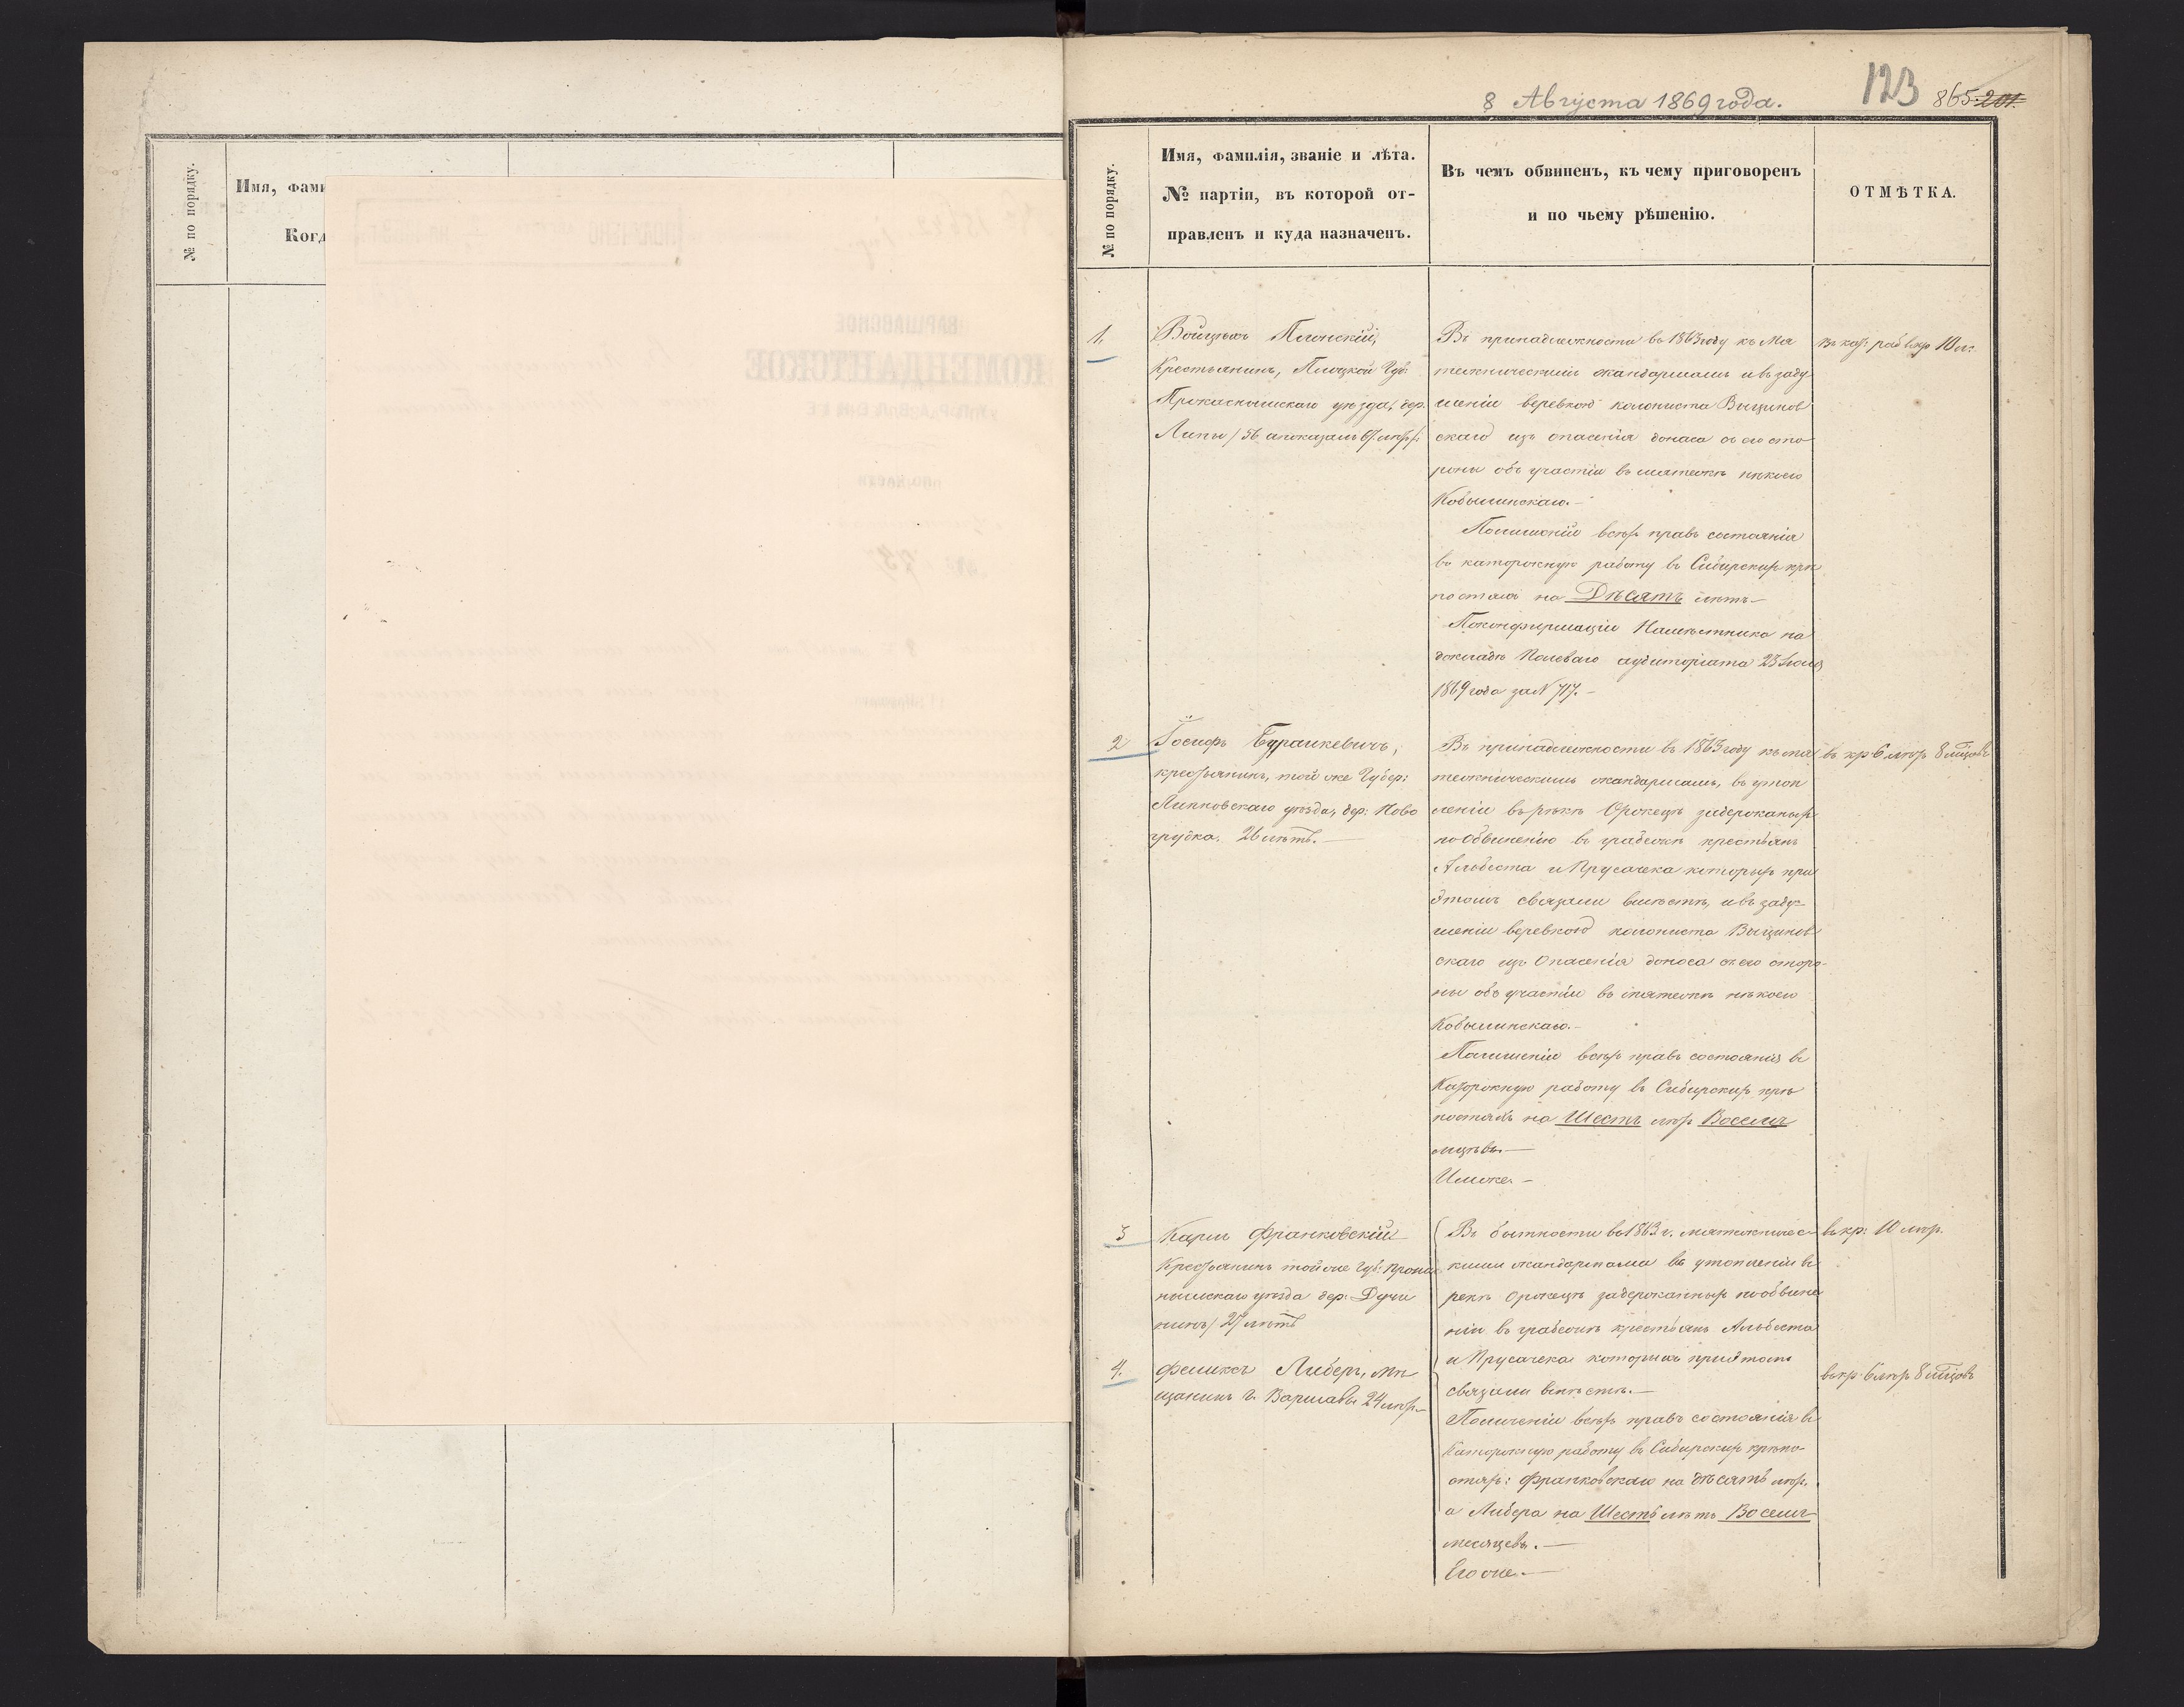 8 Августа 1869 года.
123
865 201.
№ по порядку.
Имя, фами
Когд
№ по порядку.
Имя, фамилія, званіе и лѣта.
№ партіи, въ которой от-
правленъ и куда назначенъ.
Въ чемъ обвиненъ, къ чему приговоренъ
и по чьему рѣшенію.
ОТМѢТКА.
1.
Войцѣхъ Плонскій,
Крестьянинъ, Плоцкой Губ:
Прхаснышскаго уѣзда, дер.
Липы
Въ принадлежности въ 1863 году къ мя
тежническимъ жандармамъ и въ заду-
шеніи веревкою колониста Выщинов
скаго изъ опасенія доноса съ его сто
роны объ участіи въ мятежѣ нѣкоего
Кобылинскаго.-
По лишеніи всѣхъ правъ состоянія
въ каторжную работу въ Сибирскихъ крѣ
постяхъ на Десять лѣтъ-
По конфирмаціи Намѣстника на
докладѣ Полеваго аудиторіата 23 Іюля
1869 года за N 717.-
въ кат: раб въ кр 10 л:
2
Іосифъ Буранкевичъ,
крестьянинъ, той же Губер:
Липновскаго уѣзда, дер: Ново
грудка. 26 лѣтъ.-
Въ принадлежности въ 1863 году къ мя
тежническимъ жандармамъ, въ утоп
леніи въ рѣкѣ Оржецъ задержанныхъ
по обвиненію въ грабежѣ крестьянъ
Альбеста и Прусачека которыхъ при
этомъ связали вмѣстѣ, и въ заду-
шеніи веревкою колониста Выщинов
скаго изъ опасенія доноса съ его сторо-
ны объ участіи въ мятежѣ нѣкоего
Кобылинскаго.-
По лишеніи всѣхъ правъ состоянія въ
Каторжную работу въ Сибирскихъ крѣ
постяхъ на Шесть лѣтъ Восемь
мцѣвъ.-
Имже.-
въ кр 6 лѣтъ 8 мѣцовъ
3
Карлъ Франковскій
Крестьянинъ той же Губ: Прхас
нышскаго уѣзда дер. Дучи
нинъ, 27 лѣтъ
Въ бытности въ 1863 г. мятежничес-
кими жандармами въ утопленіи въ
рекѣ Оржецъ задержанныхъ по обвине
нію въ грабежѣ крестьянъ Альбеста
и Прусачека которыхъ при этомъ
связали вмѣстѣ.-
По лишеніи всѣхъ правъ состоянія въ
Каторжную работу въ Сибирскихъ крѣпо-
стяхъ: Франковскаго на десять лѣтъ.
а Либера на Шесть лѣтъ Восемь
месяцевъ.-
Его же.-
въ кр: 10 лѣтъ.
4.
Феликсъ Либеръ, мѣ
щанинъ г. Варшавы 24 лѣтъ.-
въ кр: 6 лѣтъ 8 мѣцовъ